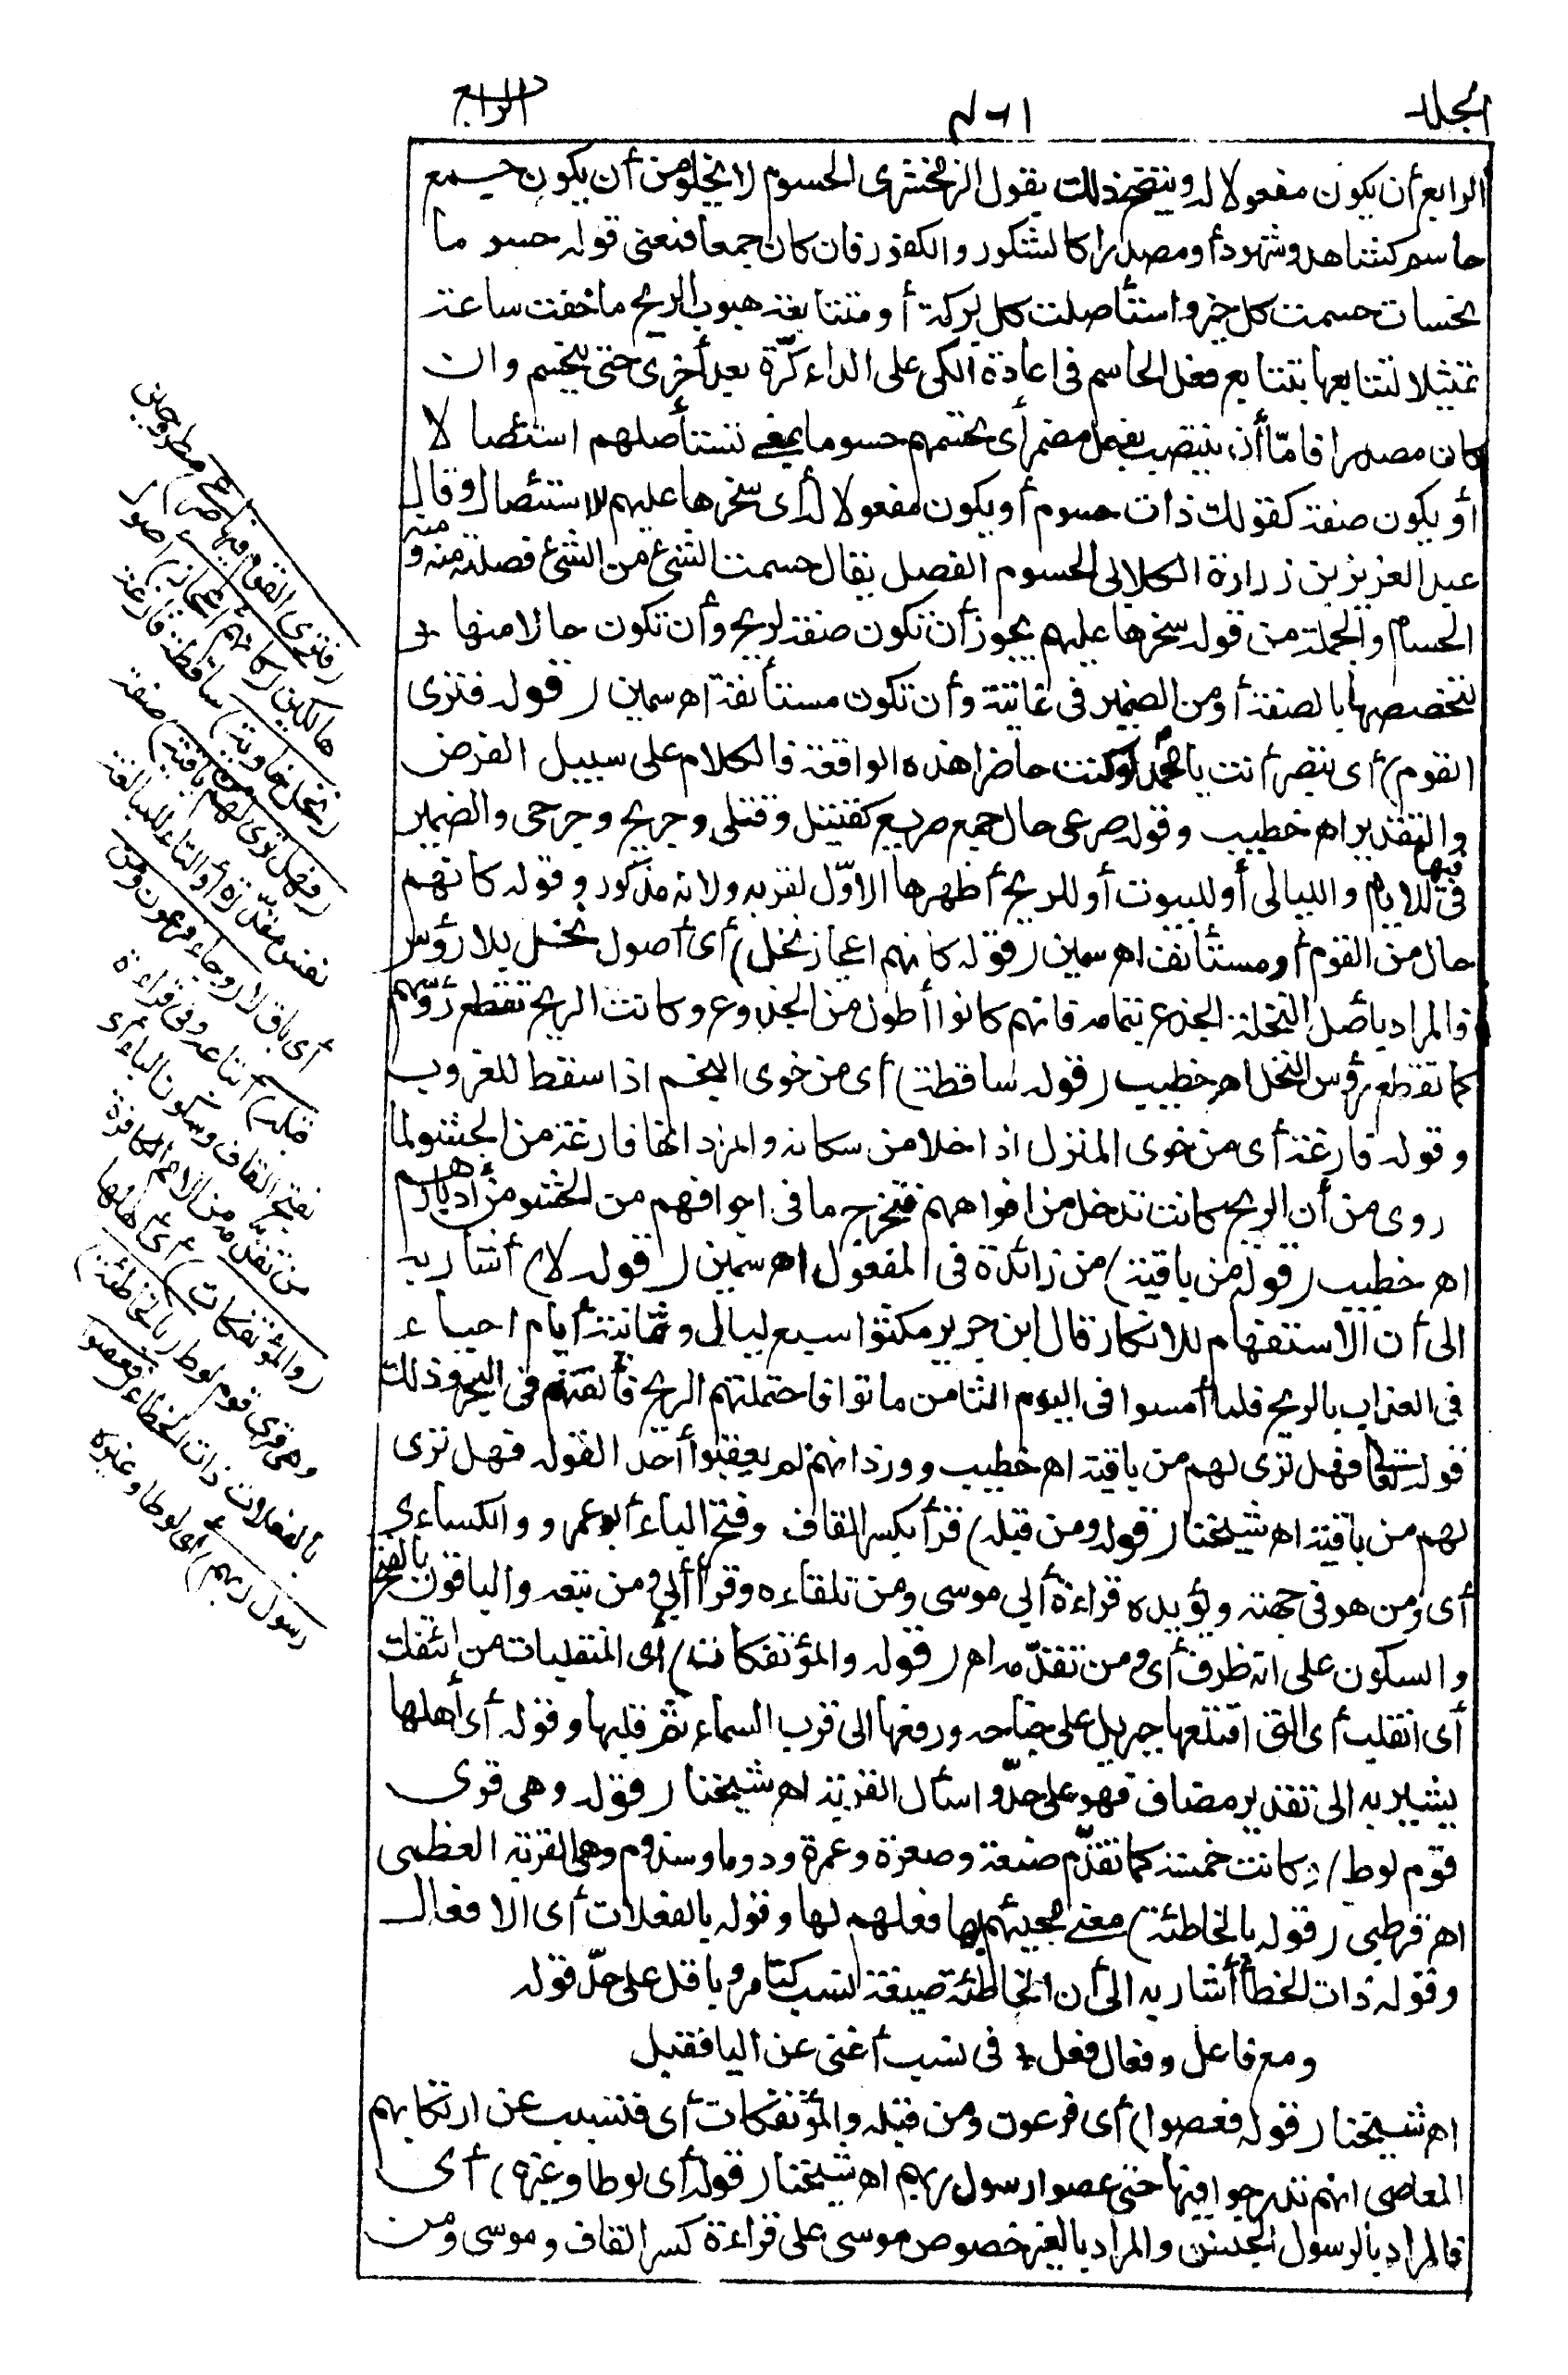 المجلد
الرابع
الرابع أن يكون مفعولا له ويتضح ذلك بقول الزمخشرى الحسوم لا يخلو من أن يكون جمع
حاسم كشاهد وشهود أو مصدرا كالشكور والكفور فان كان جمعا فمعنى قوله حسوما
نحسات حسمت كل خير واستأصلت كل بركة أو متتابعة هبوب الريح ما خفتت ساعة
تمثيلا لتتابعها بتتابع فعل الحاسم فى اعادة الكى على الداء كرّة بعد أخرى حتى ينحسم وان
كان مصدرا فامّا أن ينتصب بفعل مضمر أى تحسمهم حسوما بمعنى تستأصلهم استئصالا
أو يكون صفة كقولك ذات حسوم أو يكون مفعولا له أى سخرها عليهم للاستئصال وقال
عبد العزيز بن زرارة الكلابى الحسوم الفصل يقال حسمت الشئ من الشئ فصلته منه ومنه
الحسام والجملة من قوله سخرها عليهم يجوز أن تكون صفة لريح وأن تكون حالا منها
لتخصصها بالصفة أو من الضمير فى عاتية وأن تكون مستأنفة اه سمين (قوله فترى
القوم) أى يتصر أنت يا محمد لو كنت حاضرا هذه الواقعة فالكلام على سبيل الفرض
والتقدير اه خطيب وقوله صرعى حال جمع صريع كقتيل وقتلى وجريح وجرحى والضمير
فى فيها للايام والليالى أو للبيوت أو للريح أظهرها الاوّل لقربه ولانه مذكور وقوله كأنهم
حال من القوم أو مستأنف اه سمين (قوله كأنهم اعجاز نخل) أى أصول نخل بلا رؤس
فالمراد بأصل النخلة الجذع بتمامه فانهم كانوا أطول من الجذوع وكانت الريح تقطع رؤسهم
كما تقطع رؤس النخل اه خطيب (قوله ساقطة) أى من خوى النجم اذا سقط للغروب
وقوله فارغة أى من خوى المنزل اذا خلا من سكانه والمراد انها فارغة من الحشو لما
روى من أن الريح كانت تدخل من افواههم فتخرج ما فى اجوافهم من الحشو من أدبارهم
اه خطيب (قوله من باقية) من زائدة فى المفعول اه سمين (قوله لا) أشار به
الى أن الاستفهام للانكار قال ابن جرير مكثوا سبع ليالى وثمانية أيام احياء
فى العذاب بالريح فلما أمسوا فى اليوم الثامن ماتوا فاحتملتهم الريح فألقتهم فى البحر وذلك
قوله تعالى فهل ترى لهم من باقية اه خطيب وورد انهم لم يعقبوا أحدا لقوله فهل ترى
لهم من باقية اه شيخنا (قوله ومن قبله) قرأ بكسر القاف وفتح الباء أبو عمرو والكسائى
أى ومن هو فى جهته ويؤيده قراءة أبى موسى ومن تلقاءه وقرأ أبى ومن تبعه والباقون بالفتح
والسكون على انه ظرف أى ومن تقدّمه اه (قوله والمؤتفكات) أى المنقلبات من ائتفك
أى انقلب أى التى اقتلعها جبريل على جناحه ورفعها الى قرب السماء ثم قلبها وقوله أى أهلها
يشير به الى تقدير مضاف فهو على حدّ واسأل القرية اه شيخنا (قوله وهى قرى
قوم لوط) وكانت خمسة كما تقدّم صنعة وصعرة وعمرة ودوما وسذوم وهى القرية العظمى
اه قرطبى (قوله بالخاطئة) معنى مجيئهم بها فعلهم لها وقوله بالفعلات أى الافعال
وقوله ذات الخطأ أشار به الى أن الخاطئة صيغة نسب كتامر وباقل على حدّ قوله
ومع فاعل وفعال فعل * فى نسب أغنى عن اليا فقبل
اه شيخنا (قوله فعصوا) أى فرعون ومن قبله والمؤتفكات أى فتسبب عن ارتكابهم
المعاصى انهم تدرجوا فيها حتى عصوا رسول ربهم اه شيخنا (قوله أى لوطا وغيره) أى
فالمراد بالرسول الجنس والمراد بالغير خصوص موسى على قراءة كسر القاف وموسى ومن
(فترى القوم فيها صرعى) مطروحين
هالكين (كأنهم اعجاز) اصول
(نخل خاوية) ساقطة فارغة
(فهل ترى لهم من باقية) صفة
نفس مقدّرة أو التاء للمبالغة
أى باق لا (وجاء فرعون ومن
قبله) أتباعه وفى قراءة
بفتح القاف وسكون الباء أى
من تقدّمه من الامم الكافرة
(والمؤتفكات) أى أهلها
وهى قرى قوم لوط (بالخاطئة)
بالفعلات ذات الخطاء (فعصوا
رسول ربهم) أى لوطا وغيره